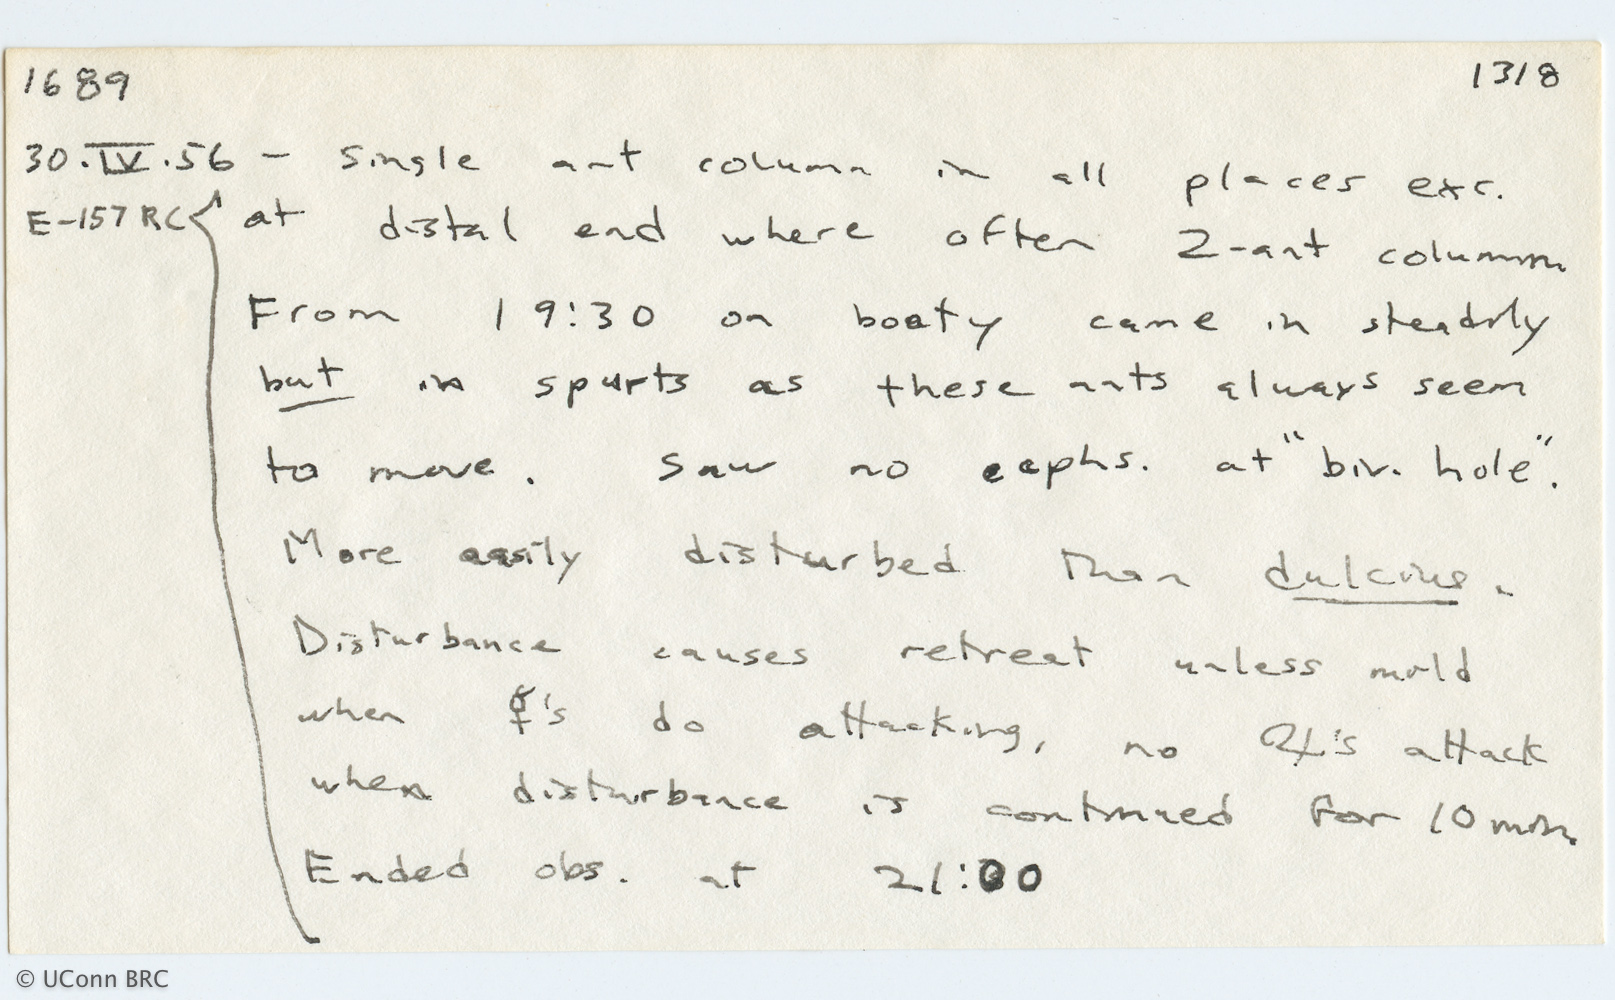 1689 1318
30.IV.56 – Single ant column in all places exc.
E-157 RC at distal end where often 2-ant column.
From 19:30 on booty came in steadily
but in spurts as these ants always seem
to move. Saw no eephs. at "biv. hole".
More easily disturbed than dulcius.
Disturbance causes retreat unless mild
when ☿'s do attacking, no ♃'s attack
when disturbance is continued for 10 min.
Ended obs. at 21:00
© UConn BRC